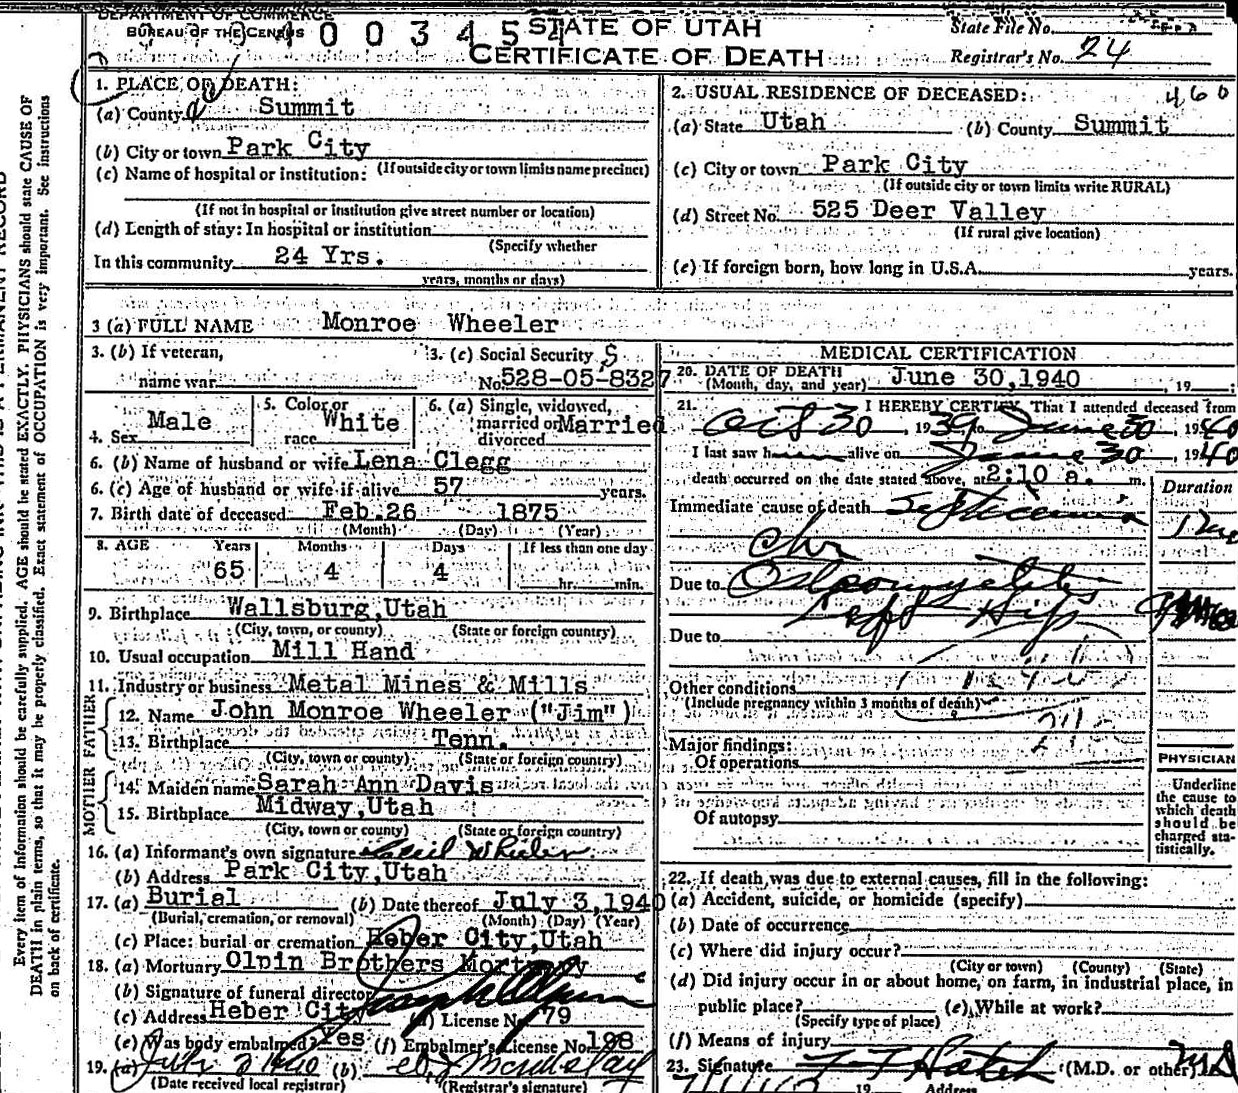 DEPARTMENT OF COMMERCE
BUREAU OF THE CENSUS
STATE OF UTAH
CERTIFICATE OF DEATH
State File No.
Registrar's No. 24
1. PLACE OF DEATH:
(a) County Summit
(b) City or town Park City
(If outside city or town limits name precinct)
(c) Name of hospital or institution:
(If not in hospital or institution give street number or location)
(d) Length of stay: In hospital or institution
(Specify whether
In this community 24 Yrs.
years, months or days)
2. USUAL RESIDENCE OF DECEASED: 460
(a) State Utah (b) County Summit
(c) City or town Park City
(If outside city or town limits write RURAL)
(d) Street No. 525 Deer Valley
(If rural give location)
(e) If foreign born, how long in U.S.A. years.
3 (a) FULL NAME Monroe Wheeler
3. (b) If veteran,
name war
3. (c) Social Security
No. 528-05-8327
4. Sex Male
5. Color or
race White
6. (a) Single, widowed,
married or Married
divorced
6. (b) Name of husband or wife Lena Clegg
6. (c) Age of husband or wife if alive 57 years.
7. Birth date of deceased Feb. 26 1875
(Month) (Day) (Year)
8. AGE Years Months Days If less than one day
65 4 4 hr. min.
9. Birthplace Wallsburg, Utah
(City, town, or county) (State or foreign country)
10. Usual occupation Mill Hand
11. Industry or business Metal Mines & Mills
FATHER
12. Name John Monroe Wheeler ("Jim")
13. Birthplace Tenn.
(City, town or county) (State or foreign country)
MOTHER
14. Maiden name Sarah Ann Davis
15. Birthplace Midway, Utah
(City, town or county) (State or foreign country)
16. (a) Informant's own signature Wheeler
(b) Address Park City, Utah
17. (a) Burial (b) Date thereof July 3, 1940
(Burial, cremation, or removal) (Month) (Day) (Year)
(c) Place: burial or cremation Heber City, Utah
18. (a) Mortuary Olpin Brothers Mortuary
(b) Signature of funeral director
(c) Address Heber City (d) License No. 79
(e) Was body embalmed? Yes (f) Embalmer's License No. 198
19. (a) (b)
(Date received local registrar) (Registrar's signature)
MEDICAL CERTIFICATION
20. DATE OF DEATH
(Month, day, and year) June 30, 1940 , 19 ;
21. I HEREBY CERTIFY, That I attended deceased from
Oct 30, 1939 to June 30, 1940
I last saw him alive on June 30, 1940
death occurred on the date stated above, at 2:10 a. m.
Duration
Immediate cause of death Septicemia
Chr
Due to Osteomyelitis
left Hip
Due to
Other conditions
(Include pregnancy within 3 months of death)
Major findings:
Of operations
Of autopsy
PHYSICIAN
Underline
the cause to
which death
should be
charged sta-
tistically.
22. If death was due to external causes, fill in the following:
(a) Accident, suicide, or homicide (specify)
(b) Date of occurrence
(c) Where did injury occur?
(City or town) (County) (State)
(d) Did injury occur in or about home, on farm, in industrial place, in
public place? (e) While at work?
(Specify type of place)
(f) Means of injury
23. Signature (M.D. or other) MD
19 Address
Every item of information should be carefully supplied. AGE should be stated EXACTLY. PHYSICIANS should state CAUSE OF
DEATH in plain terms, so that it may be properly classified. Exact statement of OCCUPATION is very important. See instructions
on back of certificate.